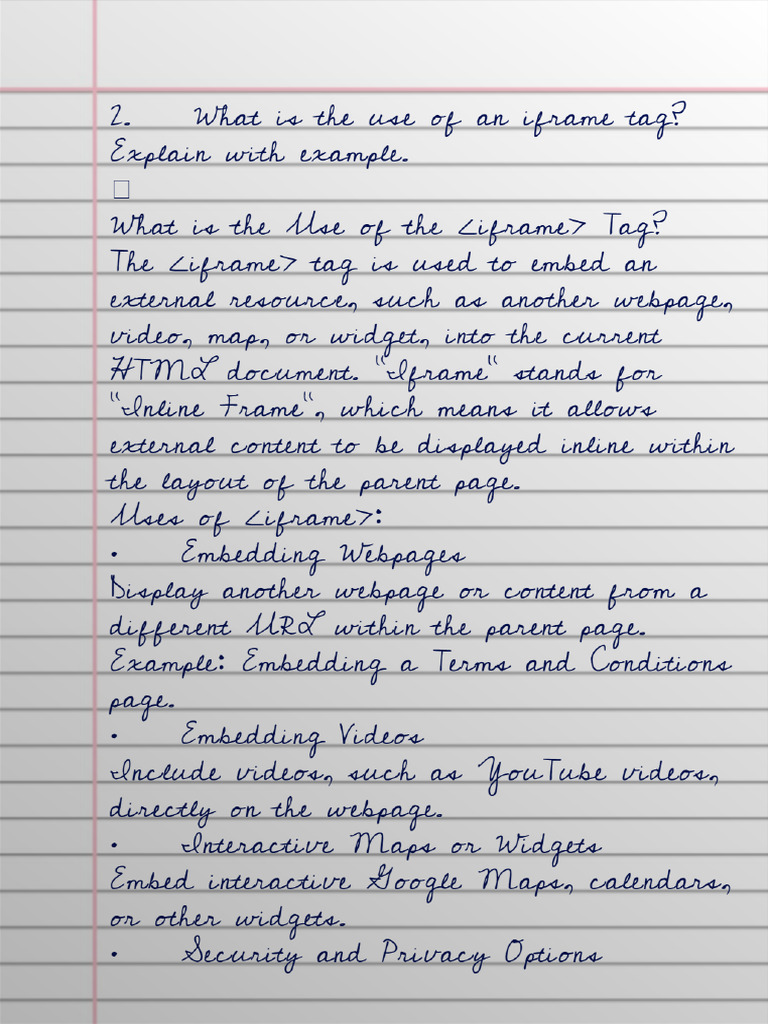 2. What is the use of an iframe tag?
Explain with example.
□
What is the Use of the <iframe> Tag?
The <iframe> tag is used to embed an
external resource, such as another webpage,
video, map, or widget, into the current
HTML document. "Iframe" stands for
"Inline Frame", which means it allows
external content to be displayed inline within
the layout of the parent page.
Uses of <iframe>:
• Embedding Webpages
Display another webpage or content from a
different URL within the parent page.
Example: Embedding a Terms and Conditions
page.
• Embedding Videos
Include videos, such as YouTube videos,
directly on the webpage.
• Interactive Maps or Widgets
Embed interactive Google Maps, calendars,
or other widgets.
• Security and Privacy Options